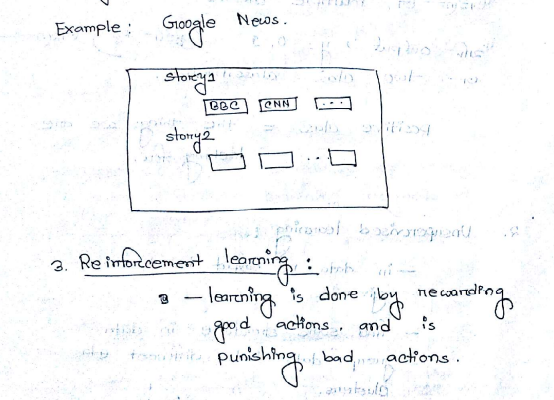 Example: Google News.
story1
BBC CNN ...
story2
...
3. Reinforcement learning:
— learning is done by rewarding
good actions. and is
punishing bad actions.